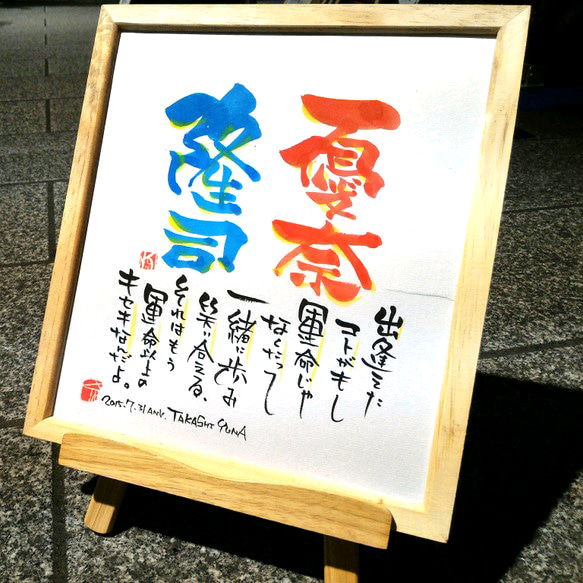 優奈
隆司
出逢えた
コトがもし
運命じゃ
なくたって
一緒に歩み
笑い合える、
それはもう
運命以上の
キセキなんだよ。
2015.7.31 ANK. TAKASHI YUNA